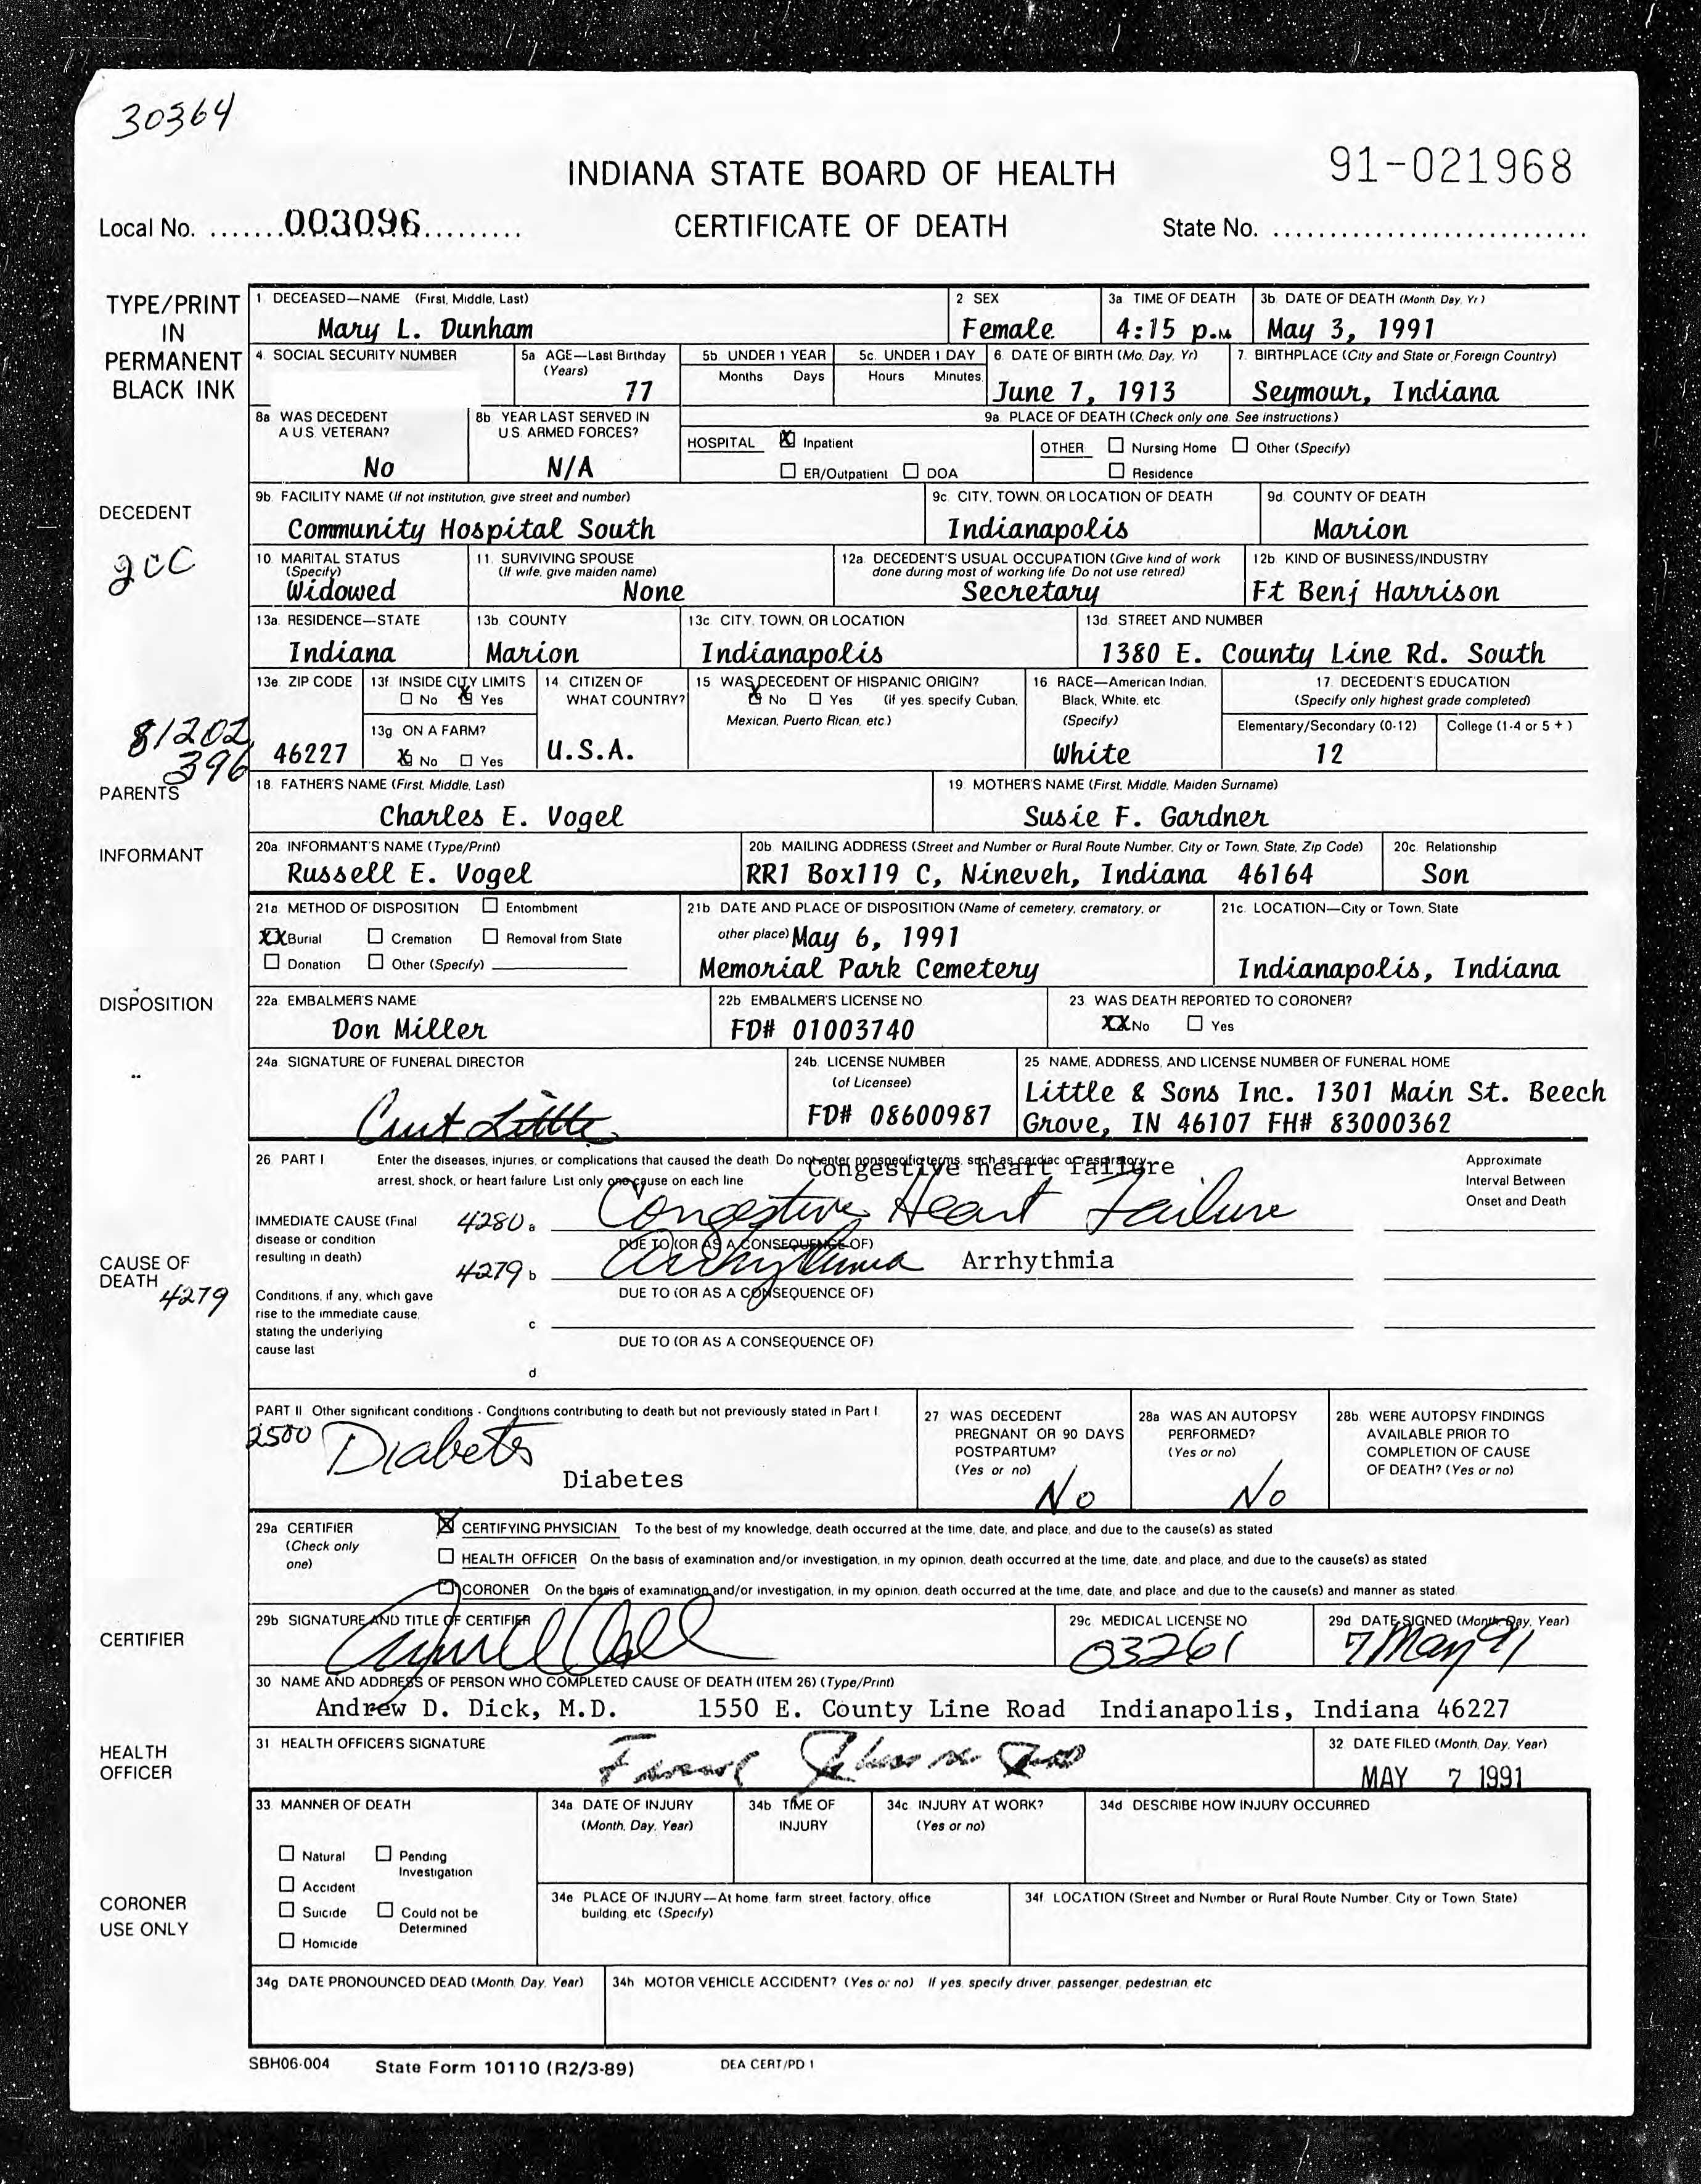 30364
INDIANA STATE BOARD OF HEALTH
91-021968
Local No. .......003096.........
CERTIFICATE OF DEATH
State No. ............................
TYPE/PRINT
IN
PERMANENT
BLACK INK
1 DECEASED—NAME (First, Middle, Last)
Mary L. Dunham
2 SEX
Female
3a TIME OF DEATH
4:15 p.M
3b DATE OF DEATH (Month, Day, Yr)
May 3, 1991
4. SOCIAL SECURITY NUMBER
5a AGE—Last Birthday
(Years)
77
5b UNDER 1 YEAR
Months Days
5c. UNDER 1 DAY
Hours Minutes
6. DATE OF BIRTH (Mo, Day, Yr)
June 7, 1913
7. BIRTHPLACE (City and State or Foreign Country)
Seymour, Indiana
8a WAS DECEDENT
A U.S. VETERAN?
No
8b YEAR LAST SERVED IN
U.S. ARMED FORCES?
N/A
9a. PLACE OF DEATH (Check only one. See instructions.)
HOSPITAL X Inpatient
☐ ER/Outpatient ☐ DOA
OTHER ☐ Nursing Home ☐ Other (Specify)
☐ Residence
DECEDENT
9b. FACILITY NAME (If not institution, give street and number)
Community Hospital South
9c CITY, TOWN, OR LOCATION OF DEATH
Indianapolis
9d. COUNTY OF DEATH
Marion
10 MARITAL STATUS
(Specify)
Widowed
11. SURVIVING SPOUSE
(If wife, give maiden name)
None
12a. DECEDENT'S USUAL OCCUPATION (Give kind of work
done during most of working life Do not use retired)
Secretary
12b KIND OF BUSINESS/INDUSTRY
Ft Benj Harrison
13a. RESIDENCE—STATE
Indiana
13b. COUNTY
Marion
13c CITY, TOWN, OR LOCATION
Indianapolis
13d. STREET AND NUMBER
1380 E. County Line Rd. South
13e. ZIP CODE
46227
13f. INSIDE CITY LIMITS
☐ No X Yes
13g ON A FARM?
X No ☐ Yes
14. CITIZEN OF
WHAT COUNTRY?
U.S.A.
15 WAS DECEDENT OF HISPANIC ORIGIN?
X No ☐ Yes (If yes, specify Cuban,
Mexican, Puerto Rican, etc.)
16 RACE—American Indian,
Black, White, etc
(Specify)
White
17. DECEDENT'S EDUCATION
(Specify only highest grade completed)
Elementary/Secondary (0-12) College (1-4 or 5 + )
12
81202
396
PARENTS
18. FATHER'S NAME (First, Middle, Last)
Charles E. Vogel
19. MOTHER'S NAME (First, Middle, Maiden Surname)
Susie F. Gardner
INFORMANT
20a. INFORMANT'S NAME (Type/Print)
Russell E. Vogel
20b. MAILING ADDRESS (Street and Number or Rural Route Number, City or Town, State, Zip Code)
RR1 Box119 C, Nineveh, Indiana 46164
20c. Relationship
Son
21a. METHOD OF DISPOSITION ☐ Entombment
XX Burial ☐ Cremation ☐ Removal from State
☐ Donation ☐ Other (Specify)
21b DATE AND PLACE OF DISPOSITION (Name of cemetery, crematory, or
other place) May 6, 1991
Memorial Park Cemetery
21c. LOCATION—City or Town, State
Indianapolis, Indiana
DISPOSITION
22a. EMBALMER'S NAME
Don Miller
22b EMBALMER'S LICENSE NO.
FD# 01003740
23. WAS DEATH REPORTED TO CORONER?
XX No ☐ Yes
24a SIGNATURE OF FUNERAL DIRECTOR
Curt Little
24b. LICENSE NUMBER
(of Licensee)
FD# 08600987
25 NAME, ADDRESS, AND LICENSE NUMBER OF FUNERAL HOME
Little & Sons Inc. 1301 Main St. Beech
Grove, IN 46107 FH# 83000362
26. PART I Enter the diseases, injuries, or complications that caused the death Do not enter nonspecific terms, such as cardiac or respiratory
arrest, shock, or heart failure List only one cause on each line
Congestive heart failure
Approximate
Interval Between
Onset and Death
CAUSE OF
DEATH
4279
IMMEDIATE CAUSE (Final
disease or condition
resulting in death)
4280 a Congestive Heart Failure
DUE TO (OR AS A CONSEQUENCE OF)
4279 b Arrhythmia Arrhythmia
DUE TO (OR AS A CONSEQUENCE OF)
Conditions, if any, which gave
rise to the immediate cause,
stating the underlying
cause last
c
DUE TO (OR AS A CONSEQUENCE OF)
d
PART II Other significant conditions - Conditions contributing to death but not previously stated in Part I
2500 Diabetes
Diabetes
27 WAS DECEDENT
PREGNANT OR 90 DAYS
POSTPARTUM?
(Yes or no)
No
28a WAS AN AUTOPSY
PERFORMED?
(Yes or no)
No
28b. WERE AUTOPSY FINDINGS
AVAILABLE PRIOR TO
COMPLETION OF CAUSE
OF DEATH? (Yes or no)
29a CERTIFIER
(Check only
one)
X CERTIFYING PHYSICIAN To the best of my knowledge, death occurred at the time, date, and place, and due to the cause(s) as stated
☐ HEALTH OFFICER On the basis of examination and/or investigation, in my opinion, death occurred at the time, date, and place, and due to the cause(s) as stated
☐ CORONER On the basis of examination and/or investigation, in my opinion, death occurred at the time, date, and place, and due to the cause(s) and manner as stated
CERTIFIER
29b SIGNATURE AND TITLE OF CERTIFIER
29c. MEDICAL LICENSE NO
03261
29d DATE SIGNED (Month, Day, Year)
7 May 91
30 NAME AND ADDRESS OF PERSON WHO COMPLETED CAUSE OF DEATH (ITEM 26) (Type/Print)
Andrew D. Dick, M.D. 1550 E. County Line Road Indianapolis, Indiana 46227
HEALTH
OFFICER
31 HEALTH OFFICER'S SIGNATURE
32 DATE FILED (Month, Day, Year)
MAY 7 1991
33. MANNER OF DEATH
☐ Natural ☐ Pending
Investigation
☐ Accident
☐ Suicide ☐ Could not be
Determined
☐ Homicide
34a DATE OF INJURY
(Month, Day, Year)
34b TIME OF
INJURY
34c INJURY AT WORK?
(Yes or no)
34d DESCRIBE HOW INJURY OCCURRED
CORONER
USE ONLY
34e PLACE OF INJURY—At home, farm, street, factory, office
building, etc (Specify)
34f. LOCATION (Street and Number or Rural Route Number, City or Town, State)
34g DATE PRONOUNCED DEAD (Month, Day, Year)
34h MOTOR VEHICLE ACCIDENT? (Yes or no) If yes, specify driver, passenger, pedestrian, etc
SBH06-004 State Form 10110 (R2/3-89) DEA CERT/PD 1